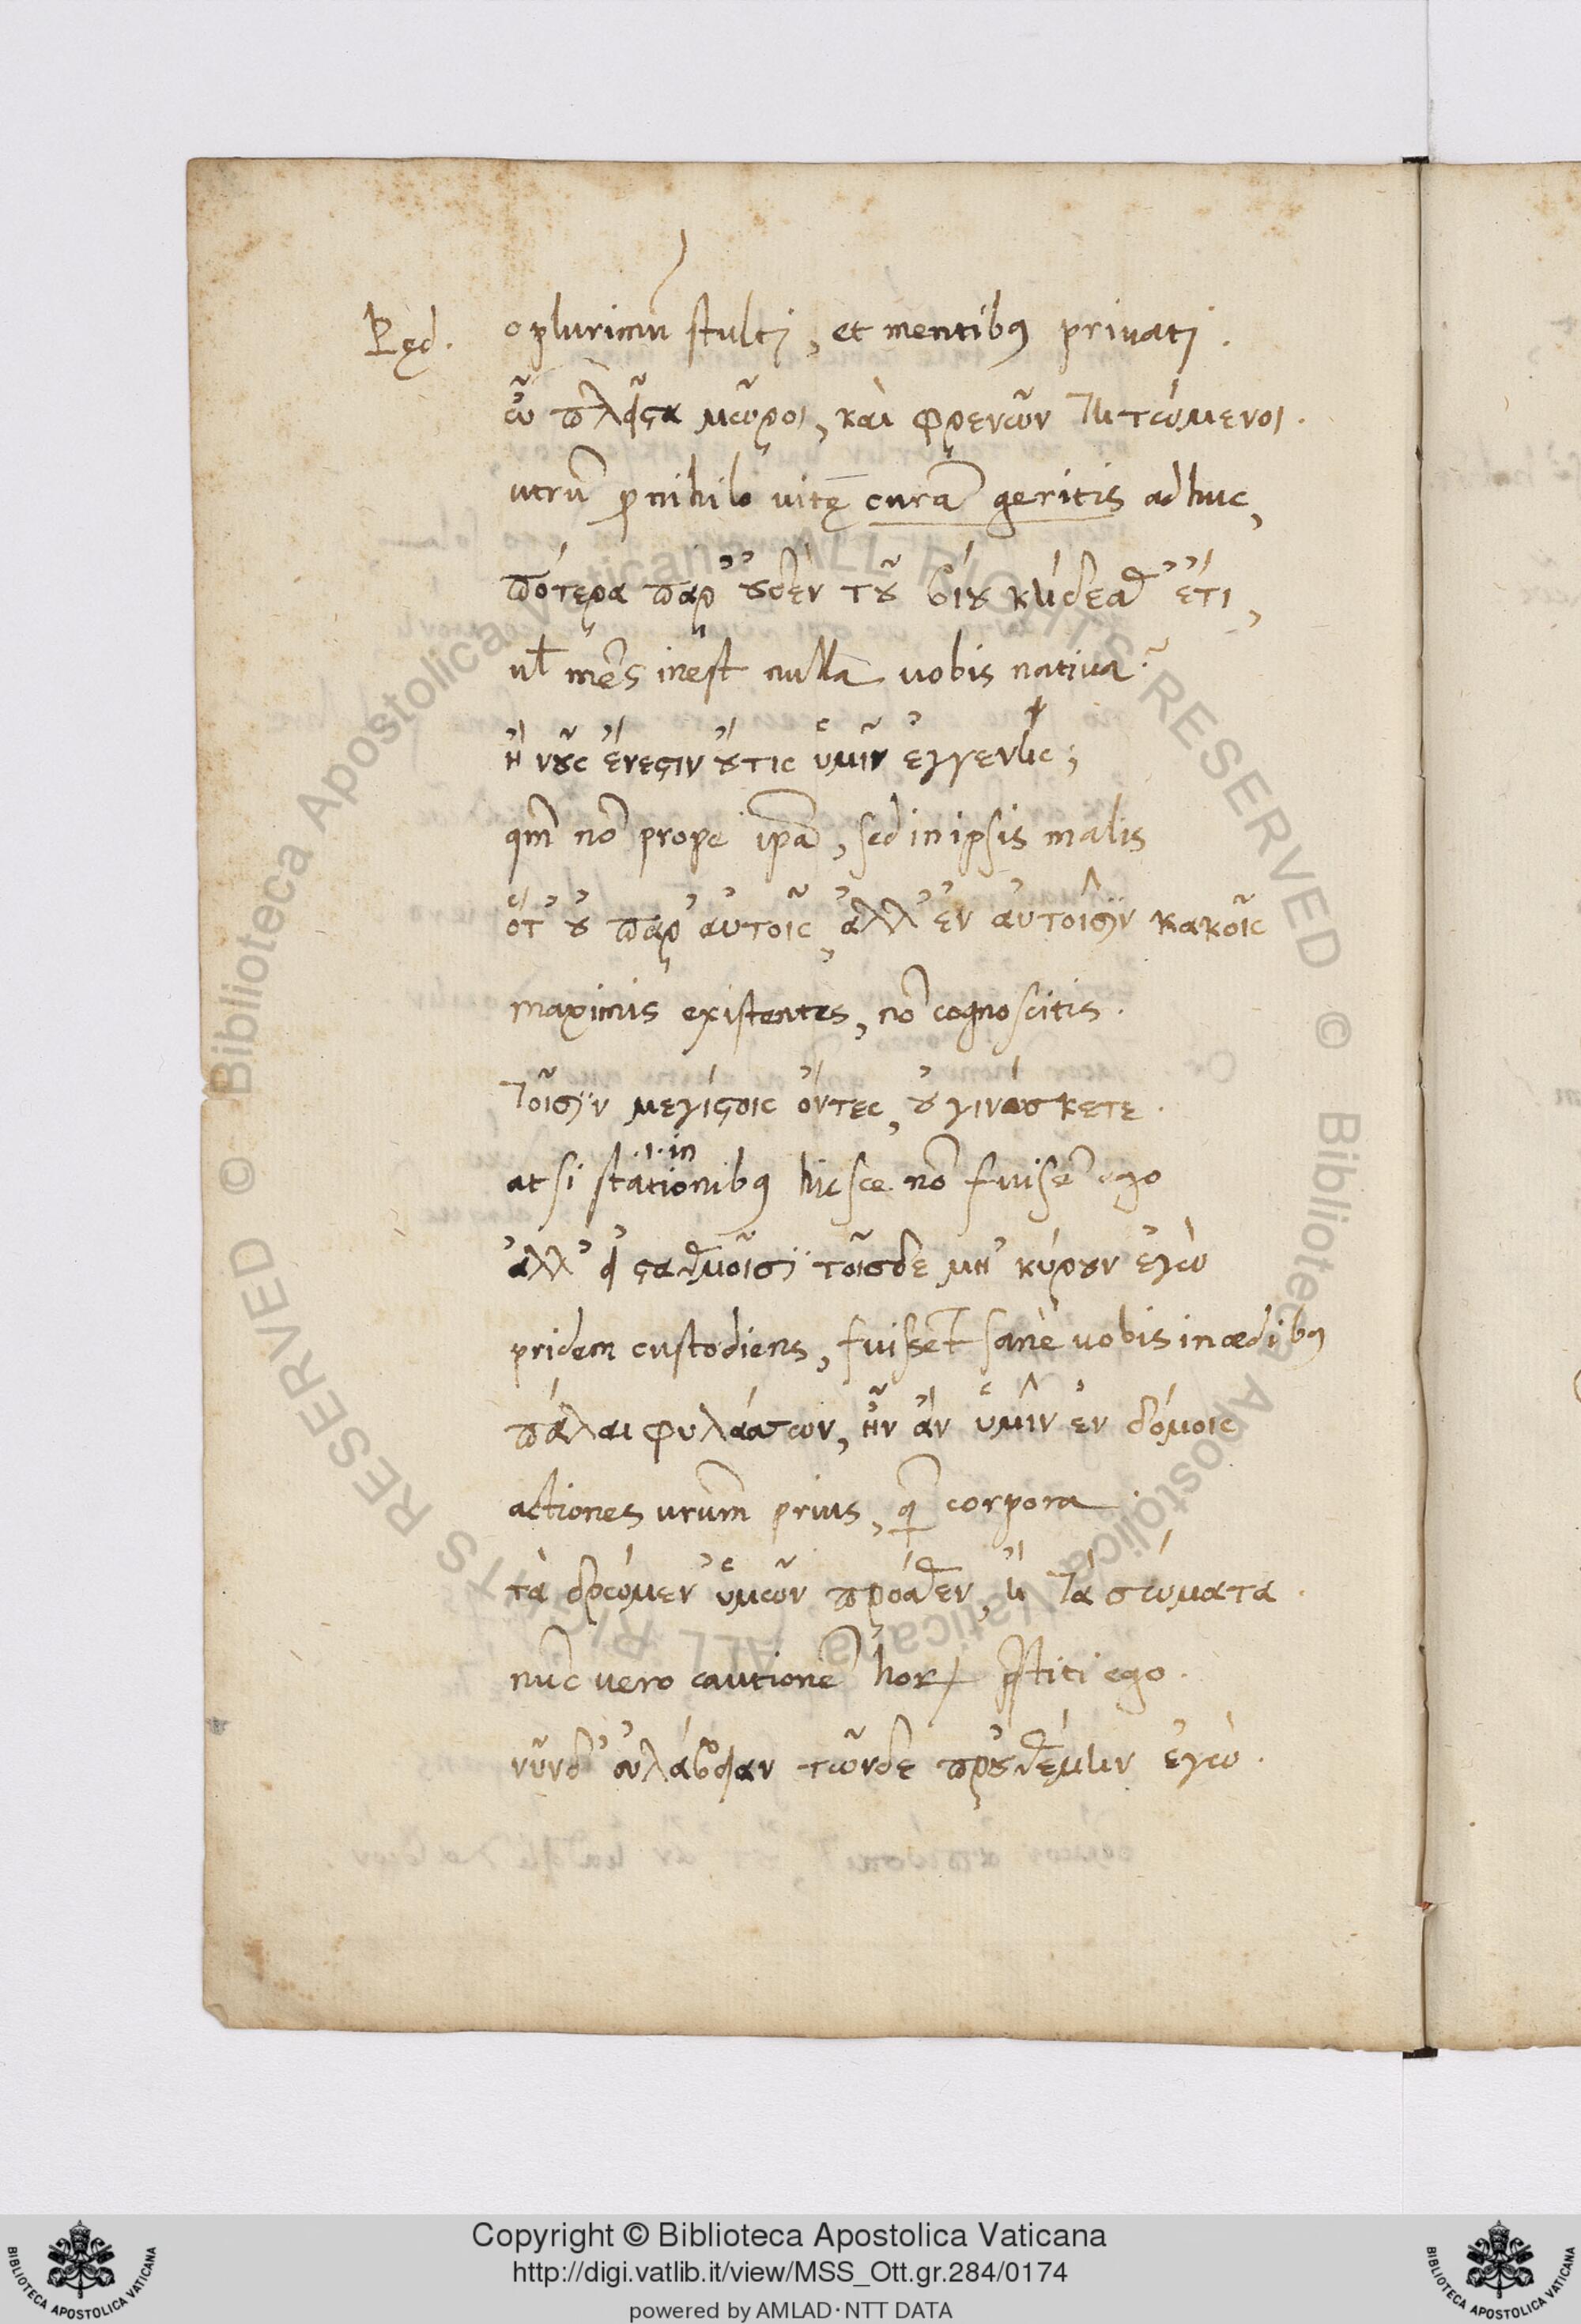 Pęd. o plurimũ stulti, et mentibꝰ privati.
ὦ πλεῖστα μῶροι, καὶ φρενῶν τητώμενοι.
utrũ ꝓ nihilo vitę curã geritis adhuc,
πότερα παρ' οὐδὲν τοῦ βίου κήδεσθ' ἔτι,
ul̃ mẽs inest nulla vobis nativa?
ἢ νοῦς ἔνεστιν οὔτις ὑμῖν ἐγγενής;
qm̃ nõ prope ip̃a, sed in ipsis malis
ὅτ' οὐ παρ' αὐτοῖς, ἀλλ' ἐν αὐτοῖσιν κακοῖς
maximis existentes, nõ cognoscitis.
τοῖσιν μεγίστοις ὄντες, οὐ γινώσκετε.
.i. in
at si stationibꝰ hisce nõ fuisẽ ego
ἀλλ' εἰ σταθμοῖσι τοῖσδε μὴ κύρουν ἐγὼ
pridem custodiens, fuissẽt sane vobis in ædibꝰ
πάλαι φυλάσσων, ἦν ἂν ὑμῖν ἐν δόμοις
actiones vrũm prius, q̃ corpora.
τὰ δρώμεν' ὑμῶν πρόσθεν, ἢ τὰ σώματα.
nũc vero cautionẽ horꝝ p̃stiti ego.
νῦν δ' εὐλάβειαν τῶνδε προὐθέμην ἐγώ.
Copyright © Biblioteca Apostolica Vaticana
http://digi.vatlib.it/view/MSS_Ott.gr.284/0174
powered by AMLAD·NTT DATA